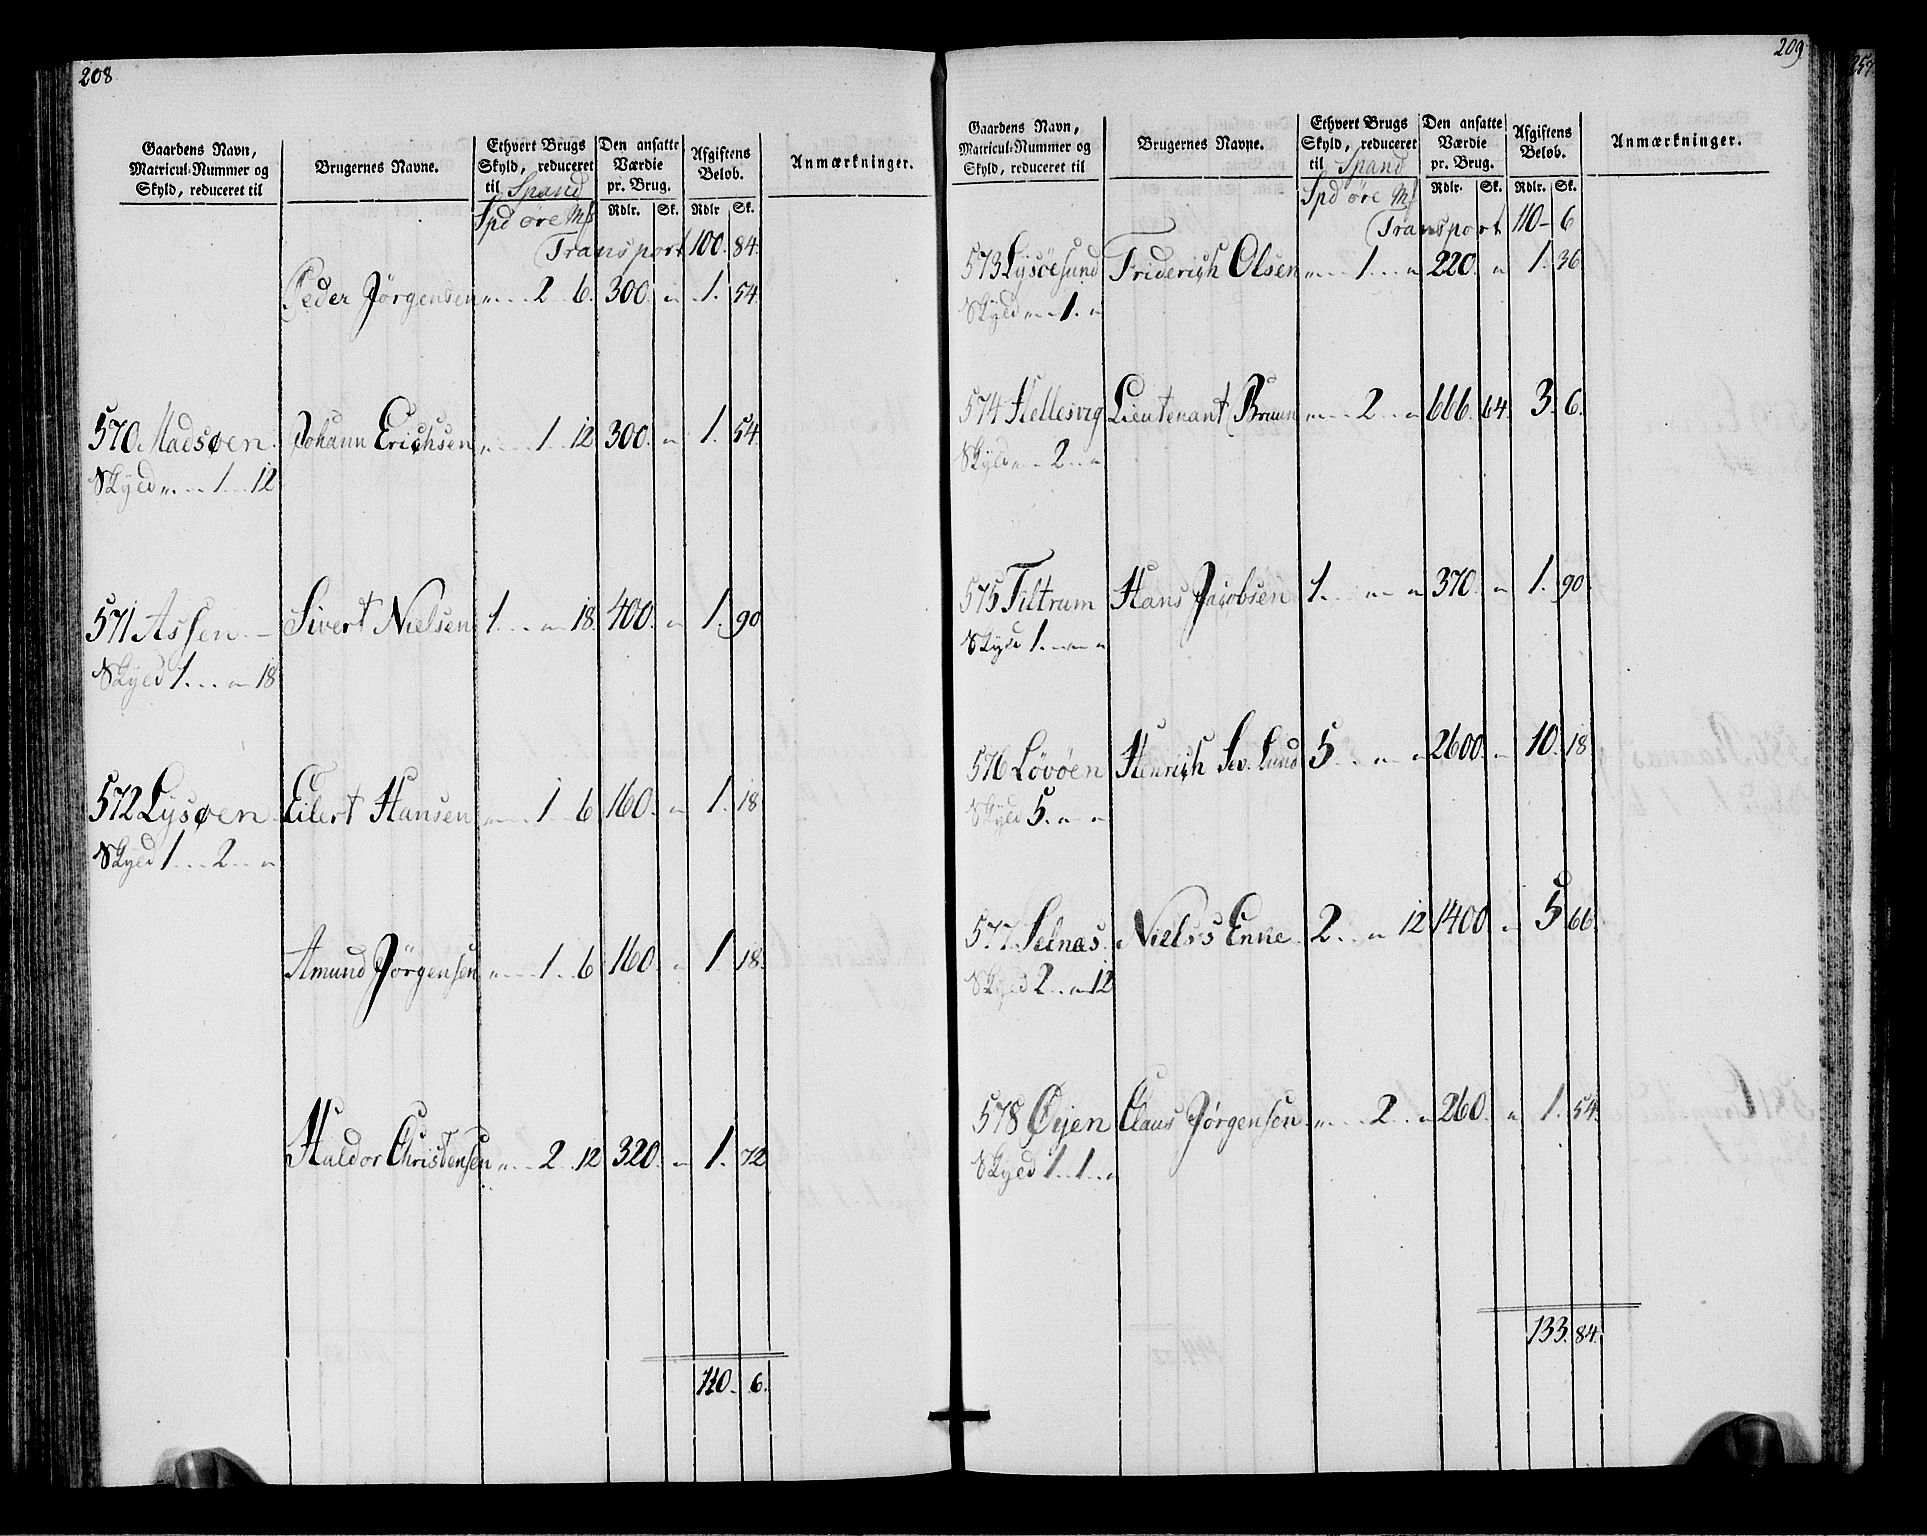 208
Gaardens Navn, Matricul-Nummer og Skyld, reduceret til | Brugernes Navne. | Ethvert Brugs Skyld, reduceret til Spand | Den ansatte Værdie pr. Brug. | Afgiftens Beløb. | Anmærkninger.
Spd øre Mk | Rdlr. | Sk. | Rdlr | Sk.
Transport 100. 84.
Peder Jörgensen „ 2 6. 300. „ 1. 54
570 Madsøen. Johann Erichsen „ 1 12 300. „ 1. 54
Skyld „ 1 12
571 Assen Sivert Nielsen 1. „ 18. 400. „ 1. 90
Skyld 1. „ 18
572 Lysøen Eilert Hansen „ 1 6 160. „ 1. 18
Skyld 1 2 „
Amund Jörgensen „ 1. 6 160. „ 1. 18.
Haldor Christensen „ 2 12 320. „ 1. 72
110. 6.
209
Gaardens Navn, Matricul-Nummer og Skyld, reduceret til | Brugernes Navne. | Ethvert Brugs Skyld, reduceret til Spand | Den ansatte Værdie pr. Brug. | Afgiftens Beløb. | Anmærkninger.
Spd øre Mk | Rdlr. | Sk. | Rdlr. | Sk.
Transport 110 6
573 Lysöesund Friderich Olsen „ 1 „ 220. „ 1. 36
Skyld „ 1. „
574 Hellesvig Lieutenant Bruun „ 2 „ 666. 64. 3. 6.
Skyld „ 2 „
575 Tiltrum Hans Jacobsen 1. „ „ 370. „ 1. 90.
Skyld 1. „ „
576 Lövöen Henrich Sev. Lund 5. „ „ 2600. „ 10. 18
Skyld 5. „ „
577. Selnæs. Nielss Enke 2 „ 12 1400 „ 5 66.
Skyld 2 „ 12
578 Øijen Claus Jørgensen „ 2 „ 260. „ 1. 54.
Skyld 1 1 „
133. 84.